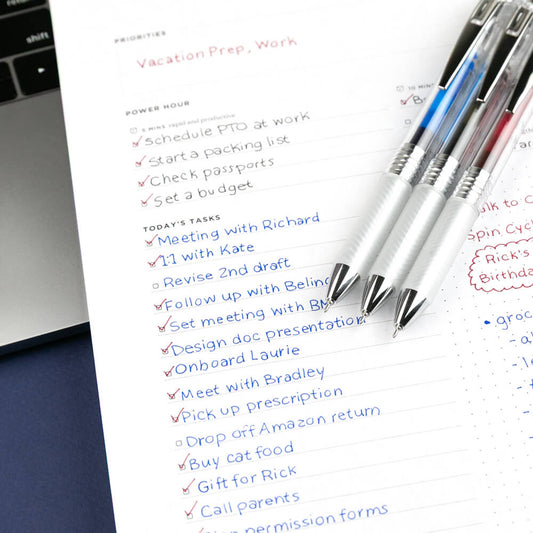 shift
PRIORITIES
Vacation Prep, Work
POWER HOUR
5 MINS rapid and productive
Schedule PTO at work
Start a packing list
Check passports
Set a budget
10 MINS
TODAY'S TASKS
Meeting with Richard
1:1 with Kate
Revise 2nd draft
Follow up with
Set meeting with
Design doc presentation
Onboard Laurie
Meet with Bradley
Pick up prescription
Drop off Amazon return
Buy cat food
Gift for Rick
Call parents
permission forms
to
Spin
Rick's